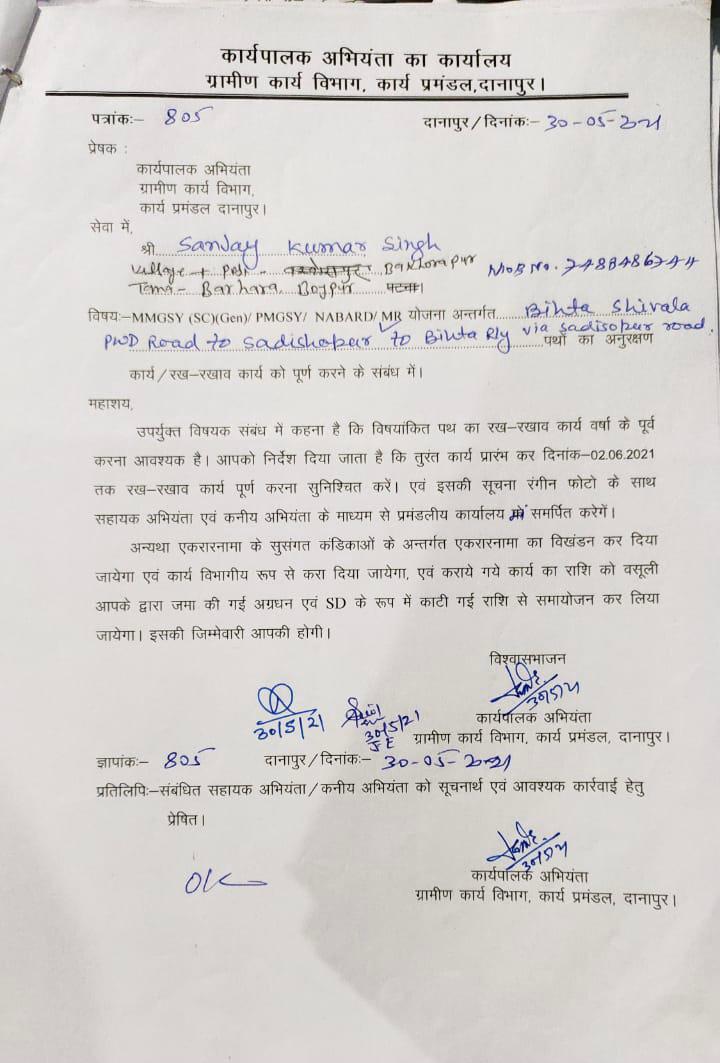 कार्यपालक अभियंता का कार्यालय
ग्रामीण कार्य विभाग, कार्य प्रमंडल,दानापुर।
पत्रांकः– 805 दानापुर/दिनांकः– 30-05-2021
प्रेषक :
कार्यपालक अभियंता
ग्रामीण कार्य विभाग,
कार्य प्रमंडल दानापुर।
सेवा में,
श्री Sanjay Kumar Singh
Village + Post - Bakhorapur MOB No. 7488486744
Barhara, Bojpur पटना।
विषयः–MMGSY (SC)(Gen)/ PMGSY/ NABARD/ MR योजना अन्तर्गत Bihta Shivala
PWD Road to Sadishopur to Bihta Rly via Sadisopur road. पथों का अनुरक्षण
कार्य/रख–रखाव कार्य को पूर्ण करने के संबंध में।
महाशय,
उपर्युक्त विषयक संबंध में कहना है कि विषयांकित पथ का रख–रखाव कार्य वर्षा के पूर्व
करना आवश्यक है। आपको निर्देश दिया जाता है कि तुरंत कार्य प्रारंभ कर दिनांक–02.06.2021
तक रख–रखाव कार्य पूर्ण करना सुनिश्चित करें। एवं इसकी सूचना रंगीन फोटो के साथ
सहायक अभियंता एवं कनीय अभियंता के माध्यम से प्रमंडलीय कार्यालय में समर्पित करेगें।
अन्यथा एकरारनामा के सुसंगत कंडिकाओं के अन्तर्गत एकरारनामा का विखंडन कर दिया
जायेगा एवं कार्य विभागीय रूप से करा दिया जायेगा, एवं कराये गये कार्य का राशि को वसूली
आपके द्वारा जमा की गई अग्रधन एवं SD के रूप में काटी गई राशि से समायोजन कर लिया
जायेगा। इसकी जिम्मेवारी आपकी होगी।
विश्वासभाजन
30/5/21
30/5/21
30/5/21
JE
कार्यपालक अभियंता
ग्रामीण कार्य विभाग, कार्य प्रमंडल, दानापुर।
ज्ञापांकः– 805 दानापुर/दिनांकः– 30-05-2021
प्रतिलिपिः–संबंधित सहायक अभियंता/कनीय अभियंता को सूचनार्थ एवं आवश्यक कार्रवाई हेतु
प्रेषित।
30/5/21
कार्यपालक अभियंता
ग्रामीण कार्य विभाग, कार्य प्रमंडल, दानापुर।
OK